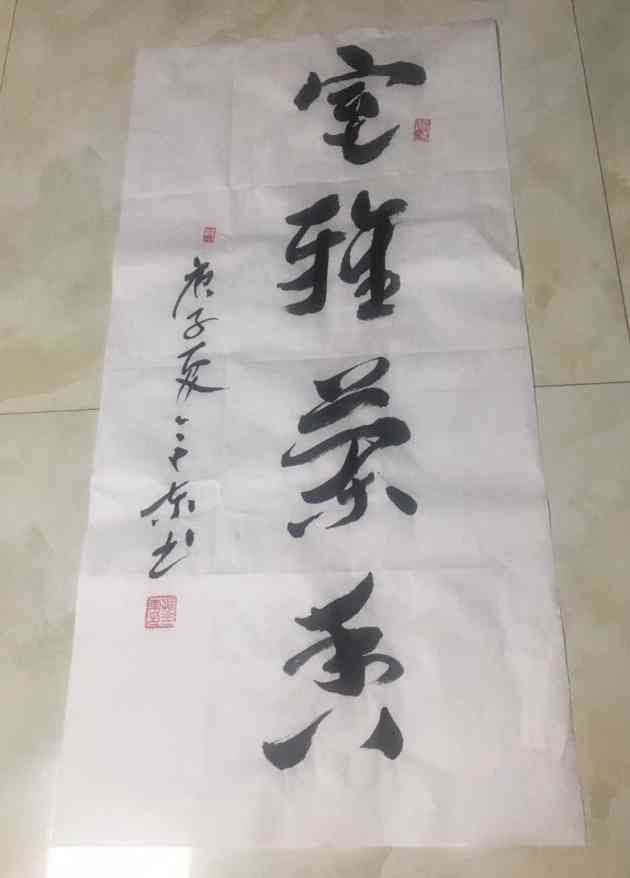 室雅兰香
庚子夏
东书